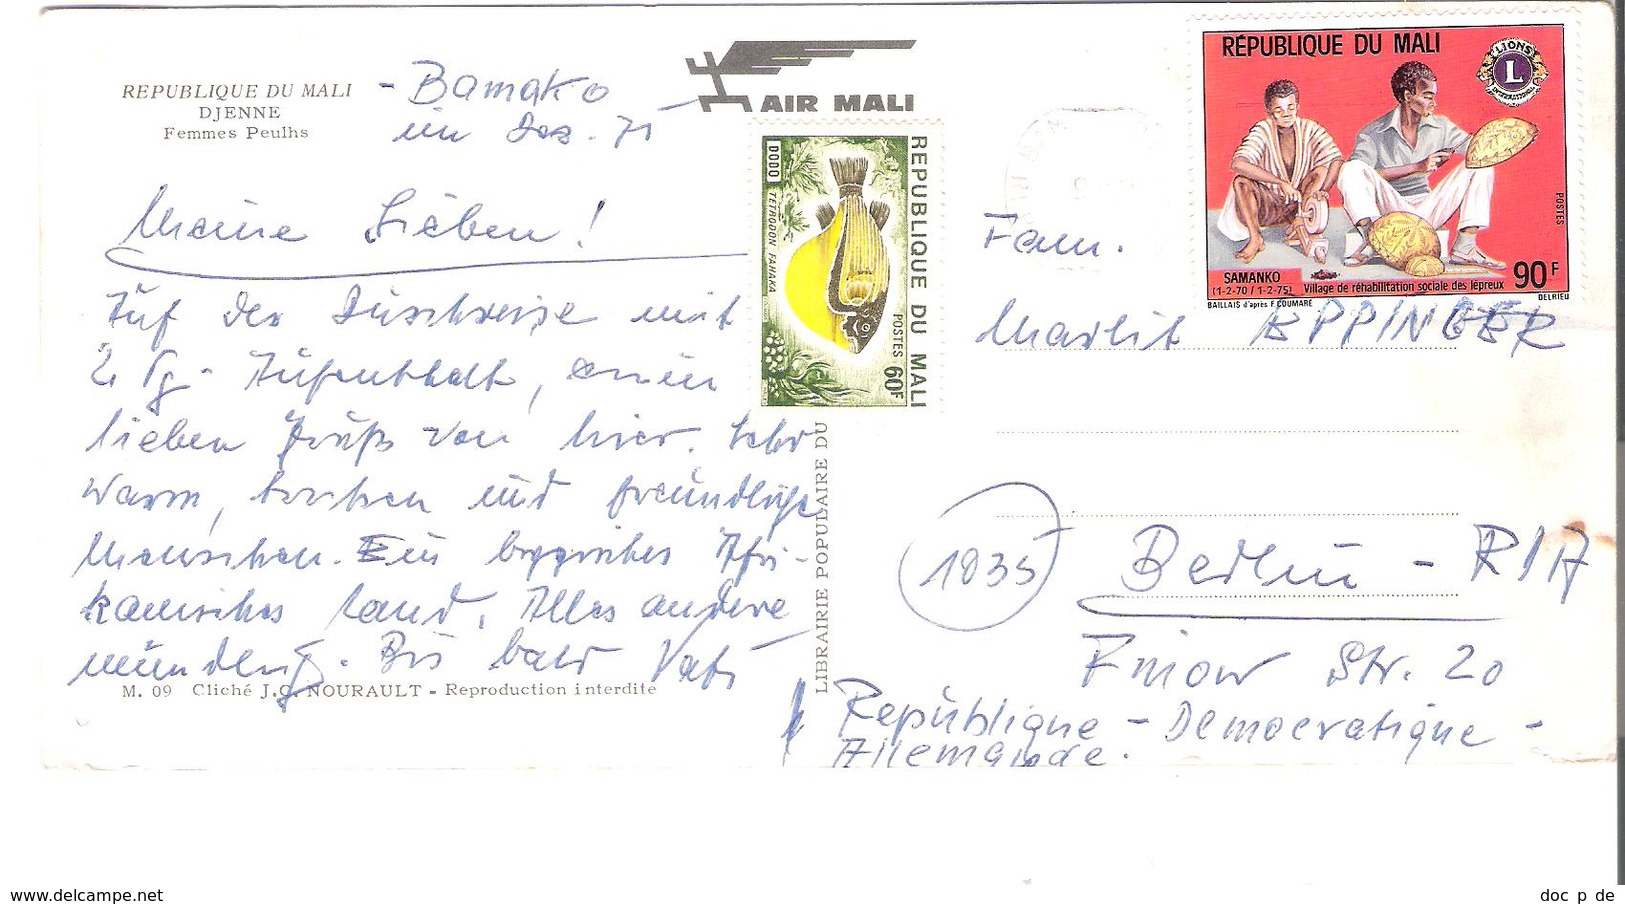 REPUBLIQUE DU MALI
DJENNE
Femmes Peulhs
- Bamako
im Dez. 75
AIR MALI
Meine Lieben!
Auf der Durchreise mit
2 Tg. Aufenthalt, einen
lieben Gruß von hier. Sehr
warm, trocken und freundliche
Menschen. Ein typisches Afri-
kanisches Land. Alles andere
mündlich. Bis bald Vati
M. 09 Cliché J.C. NOURAULT - Reproduction interdite
LIBRAIRIE POPULAIRE DU
REPUBLIQUE DU MALI
POSTES 60F
DODO
TETRODON FAHAKA
RÉPUBLIQUE DU MALI
LIONS
L
INTERNATIONAL
POSTES
SAMANKO
(1-2-70 / 1-2-75)
Village de réhabilitation sociale des lépreux
90F
BAILLAIS d'après F. COUMARÉ
DELRIEU
Fam.
Marlit EPPINGER
1035
Berlin - RDA
Finow Str. 20
République - Democratique -
Allemande.
www.delcampe.net
doc p de